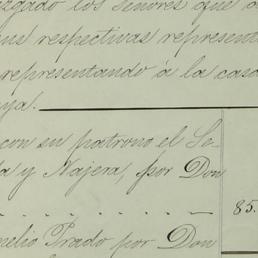 zgado los Señores que a
sus respectivas represent
representando á la casa
ya.
con su patrono el Se-
da y Najera, por Don
. . . . . . . . . 85.
nelio Prado por Don